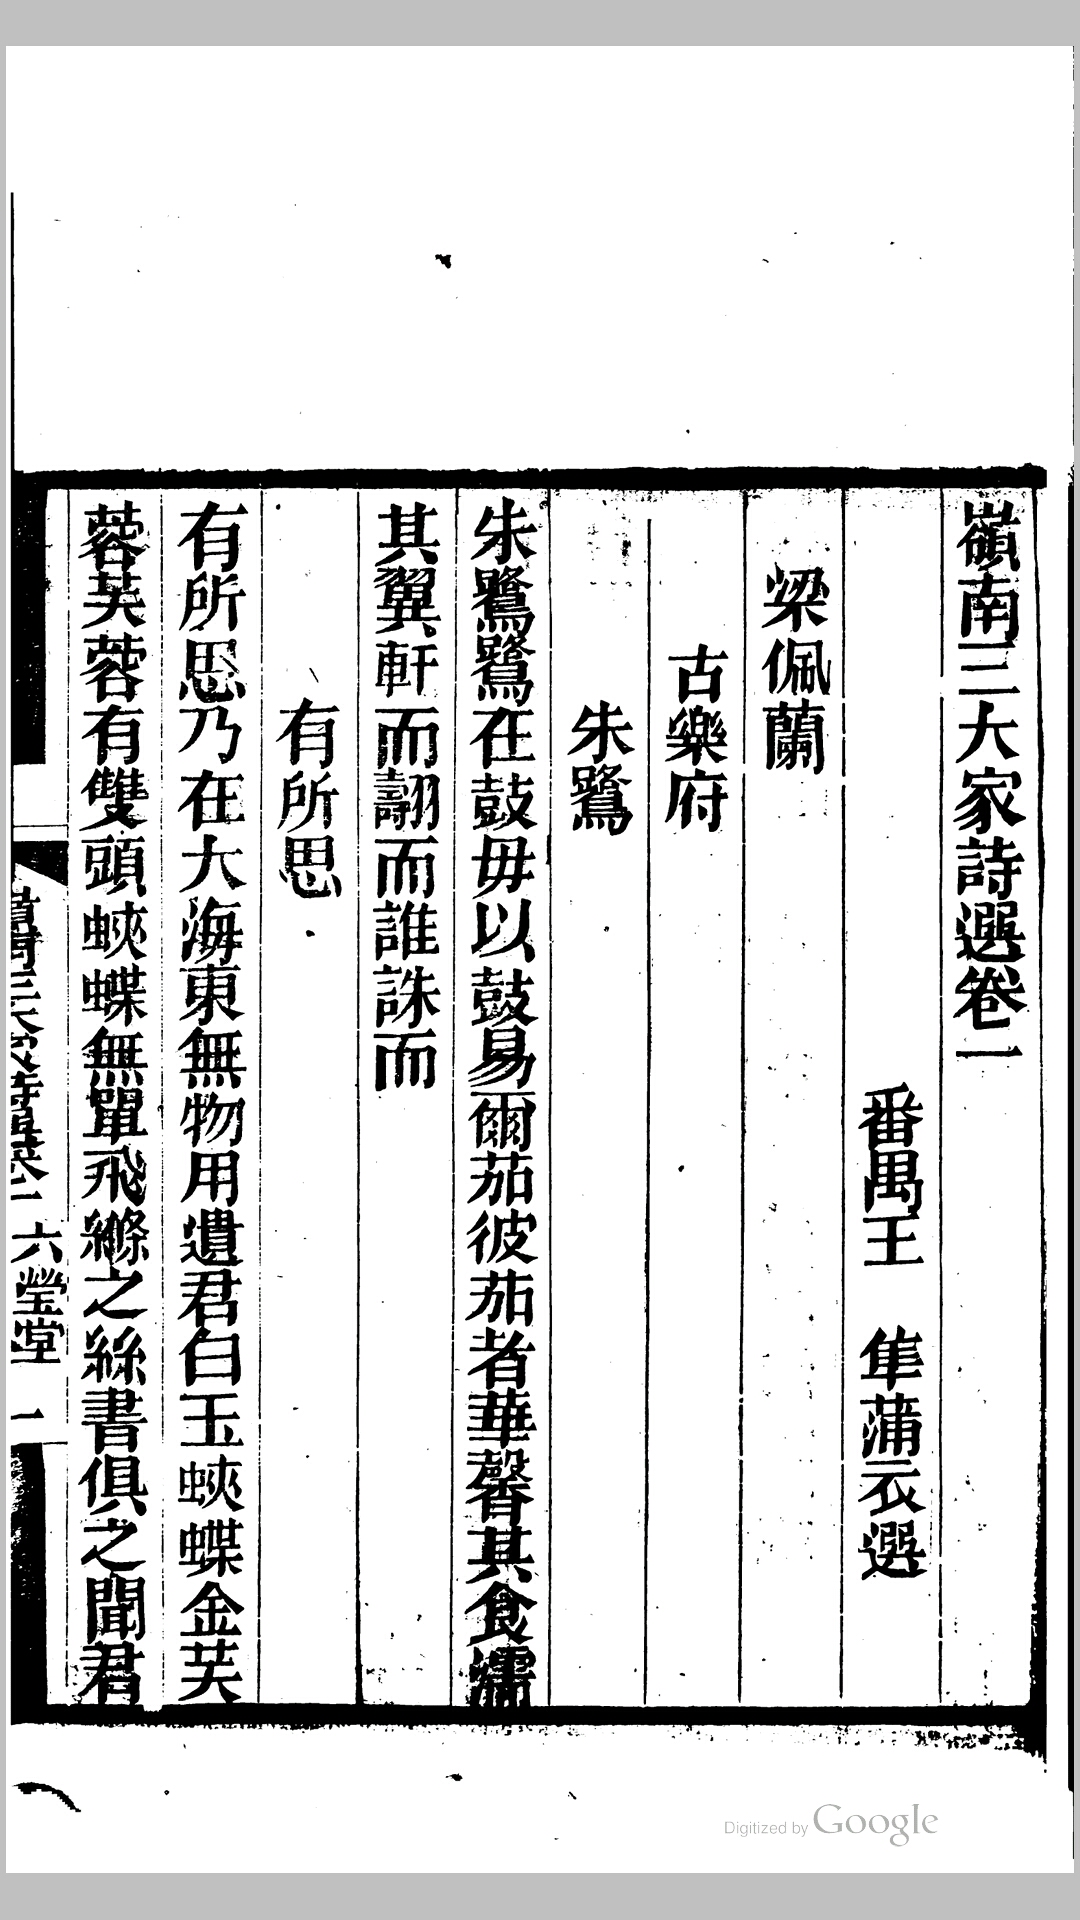 嶺南三大家詩選卷一
番禺王 隼蒲衣選
梁佩蘭
古樂府
朱鷺
朱鷺鷺在鼓毋以鼓易爾茄彼茄者華馨其食濡
其翼軒而翿而誰誅而
有所思
有所思乃在大海東無物用遺君白玉蛺蝶金芙
蓉芙蓉有雙頭蛺蝶無單飛縧之絲書俱之聞君
嶺南三大家詩選卷一 六瑩堂 一
Digitized by Google